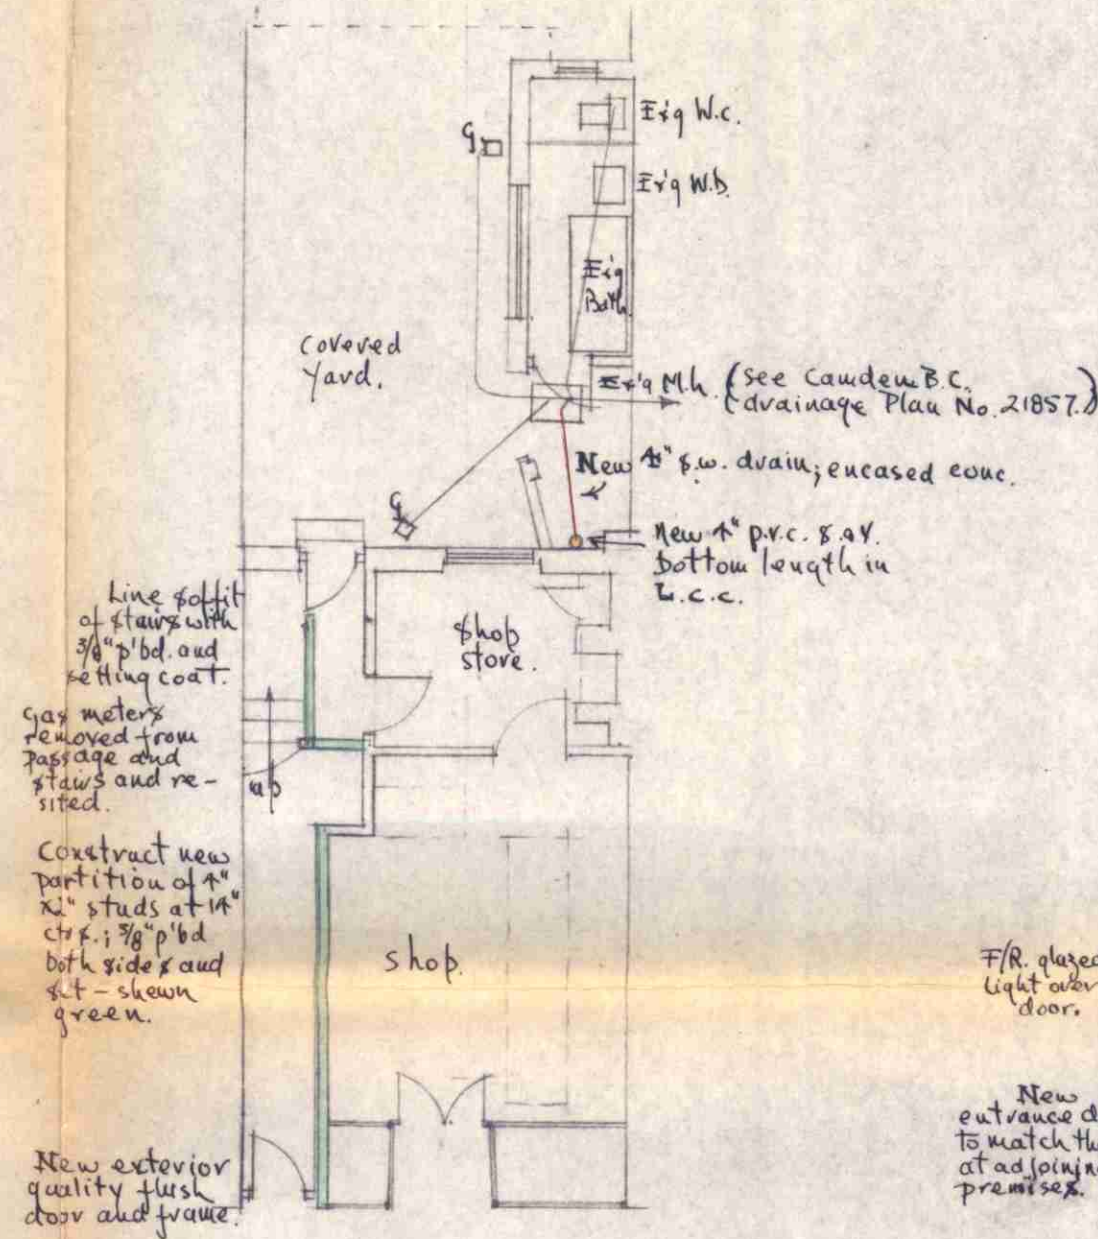 G
Ex'g W.C.
Ex'g W.b.
Ex'g
Bath.
Covered
Yard.
Ex'g M.h. (See Camden B.C.
drainage Plan No. 21857.)
New 4" s.w. drain; encased conc.
G
New 4" p.v.c. s. & v.
bottom length in
L.c.c.
Line soffit
of stairs with
3/8" p'bd. and
setting coat.
Shop
store.
Gas meters
removed from
passage and
stairs and re-
sited.
up
Construct new
partition of 4"
studs at 14"
ctrs.; 5/8" p'bd
both sides and
set - shewn
green.
Shop.
F/R. glazed
light over
door.
New
entrance d
to match th
at adjoining
premises.
New exterior
quality flush
door and frame.